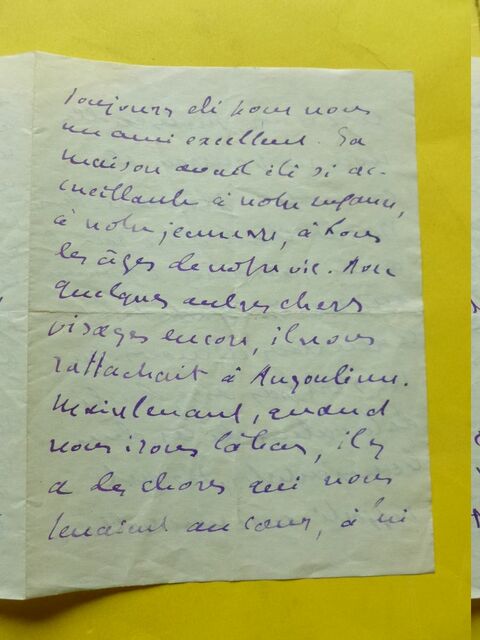 toujours été pour nous
un ami excellent. Sa
maison avait été si ac-
cueillante à notre enfance,
à notre jeunesse, à tous
les âges de notre vie. Avec
quelques autres chers
visages encore, il nous
rattachait à Angoulême.
Maintenant, quand
nous irons là bas, il y
a des choses qui nous
tenaient au cœur, à lui